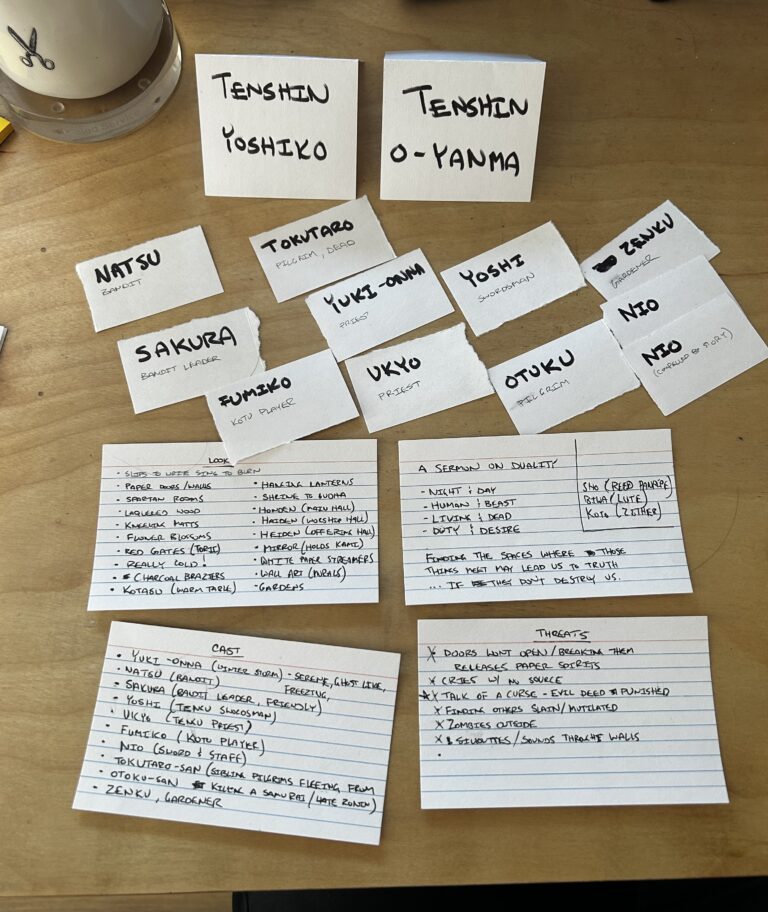 TENSHIN
YOSHIKO
TENSHIN
O-YANMA
NATSU
BANDIT
TOKUTARO
PILGRIM, DEAD
YUKI-ONNA
PRIEST
YOSHI
SWORDSMAN
ZENKU
GARDENER
NIO
NIO
(COMPELLED BY STORY)
SAKURA
BANDIT LEADER
FUMIKO
KOTU PLAYER
UKYO
PRIEST
OTUKU
PILGRIM
LOOK
• SLIPS TO WRITE SINS TO BURN
• PAPER DOORS/WALLS
• SPARTAN ROOMS
• LAQUERED WOOD
• KNEELING MATTS
• FLOWER BLOSSOMS
• RED GATES (TORII)
• REALLY COLD!
• CHARCOAL BRAZIERS
• KOTASU (WARM TABLE)
• HANGING LANTERNS
• SHRINE TO BUDHA
• HONDEN (MAIN HALL)
• HAIDEN (WORSHIP HALL)
• HEIDEN (OFFERING HALL)
• MIRROR (HOLDS KAMI)
• WHITE PAPER STREAMERS
• WALL ART (MURALS)
• GARDENS
A SERMON ON DUALITY
- NIGHT & DAY
- HUMAN & BEAST
- LIVING & DEAD
- DUTY & DESIRE
FINDING THE SPACES WHERE THOSE
THINGS MEET MAY LEAD US TO TRUTH
... IF THEY DON'T DESTROY US.
SHO (REED PANPIPE)
BIWA (LUTE)
KOTO (ZITHER)
CAST
• YUKI-ONNA (WINTER STORM) - SERENE, GHOST LIKE,
FREEZING,
• NATSU (BANDIT)
• SAKURA (BANDIT LEADER, FRIENDLY)
• YOSHI (TENKU SWORDSMAN)
• UKYO (TENKU PRIEST)
• FUMIKO (KOTU PLAYER)
• NIO (SWORD & STAFF)
• TOKUTARO-SAN (SIBLING PILGRIMS FLEEING FROM
• OTOKU-SAN KILLING A SAMURAI/HATE RONIN)
• ZENKU, GARDENER
THREATS
X DOORS WONT OPEN/BREAKING THEM
RELEASES PAPER SPIRITS
X CRIES W/ NO SOURCE
X TALK OF A CURSE - EVIL DEED PUNISHED
X FINDING OTHERS SLAIN/MUTILATED
X ZOMBIES OUTSIDE
X SILOUTTES/SOUNDS THROUGH WALLS
•